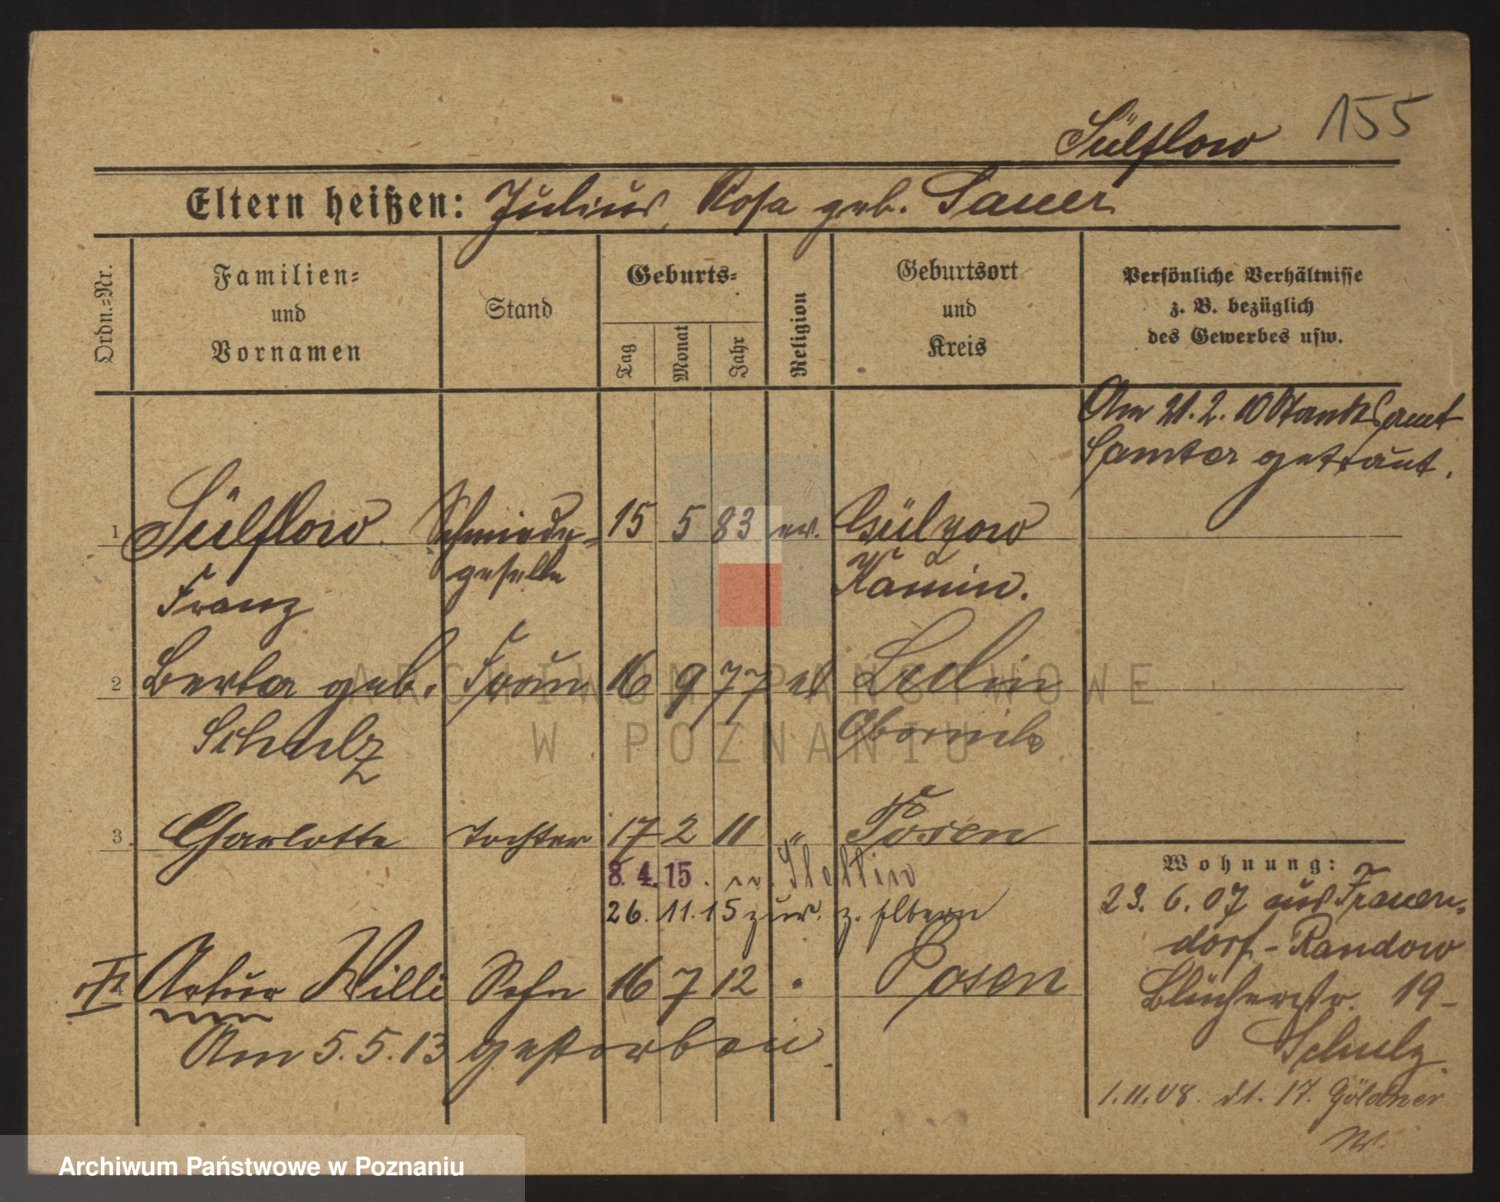 155
Sülflow
Eltern heißen: Julius, Rosa geb. Sauer
Ordn.-Nr.
Familien-
und
Vornamen
Stand
Geburts-
Tag
Monat
Jahr
Religion
Geburtsort
und
Kreis
Persönliche Verhältnisse
z. B. bezüglich
des Gewerbes usw.
Am 21. 2. 10 Standesamt
Samter getraut.
1 Sülflow Schmiede- 15 5 83 ev. Gülzow
Franz geselle Kamin.
2 Berta geb. Frau 16 9 77 ev Ludin
Schulz Obornik
3 Charlotte Tochter 17 2 11 " Posen
8. 4. 15. n. Stettin
26. 11. 15 zur. z. Eltern
Artur Willi Sohn 16 7 12 " Posen
Am 5. 5. 13 gestorben.
Wohnung:
23. 6. 07 aus Frauen-
dorf - Randow
Blücherstr. 19 -
Schulz.
1. 11. 08. 17.
ARCHIWUM PAŃSTWOWE
W POZNANIU
Archiwum Państwowe w Poznaniu